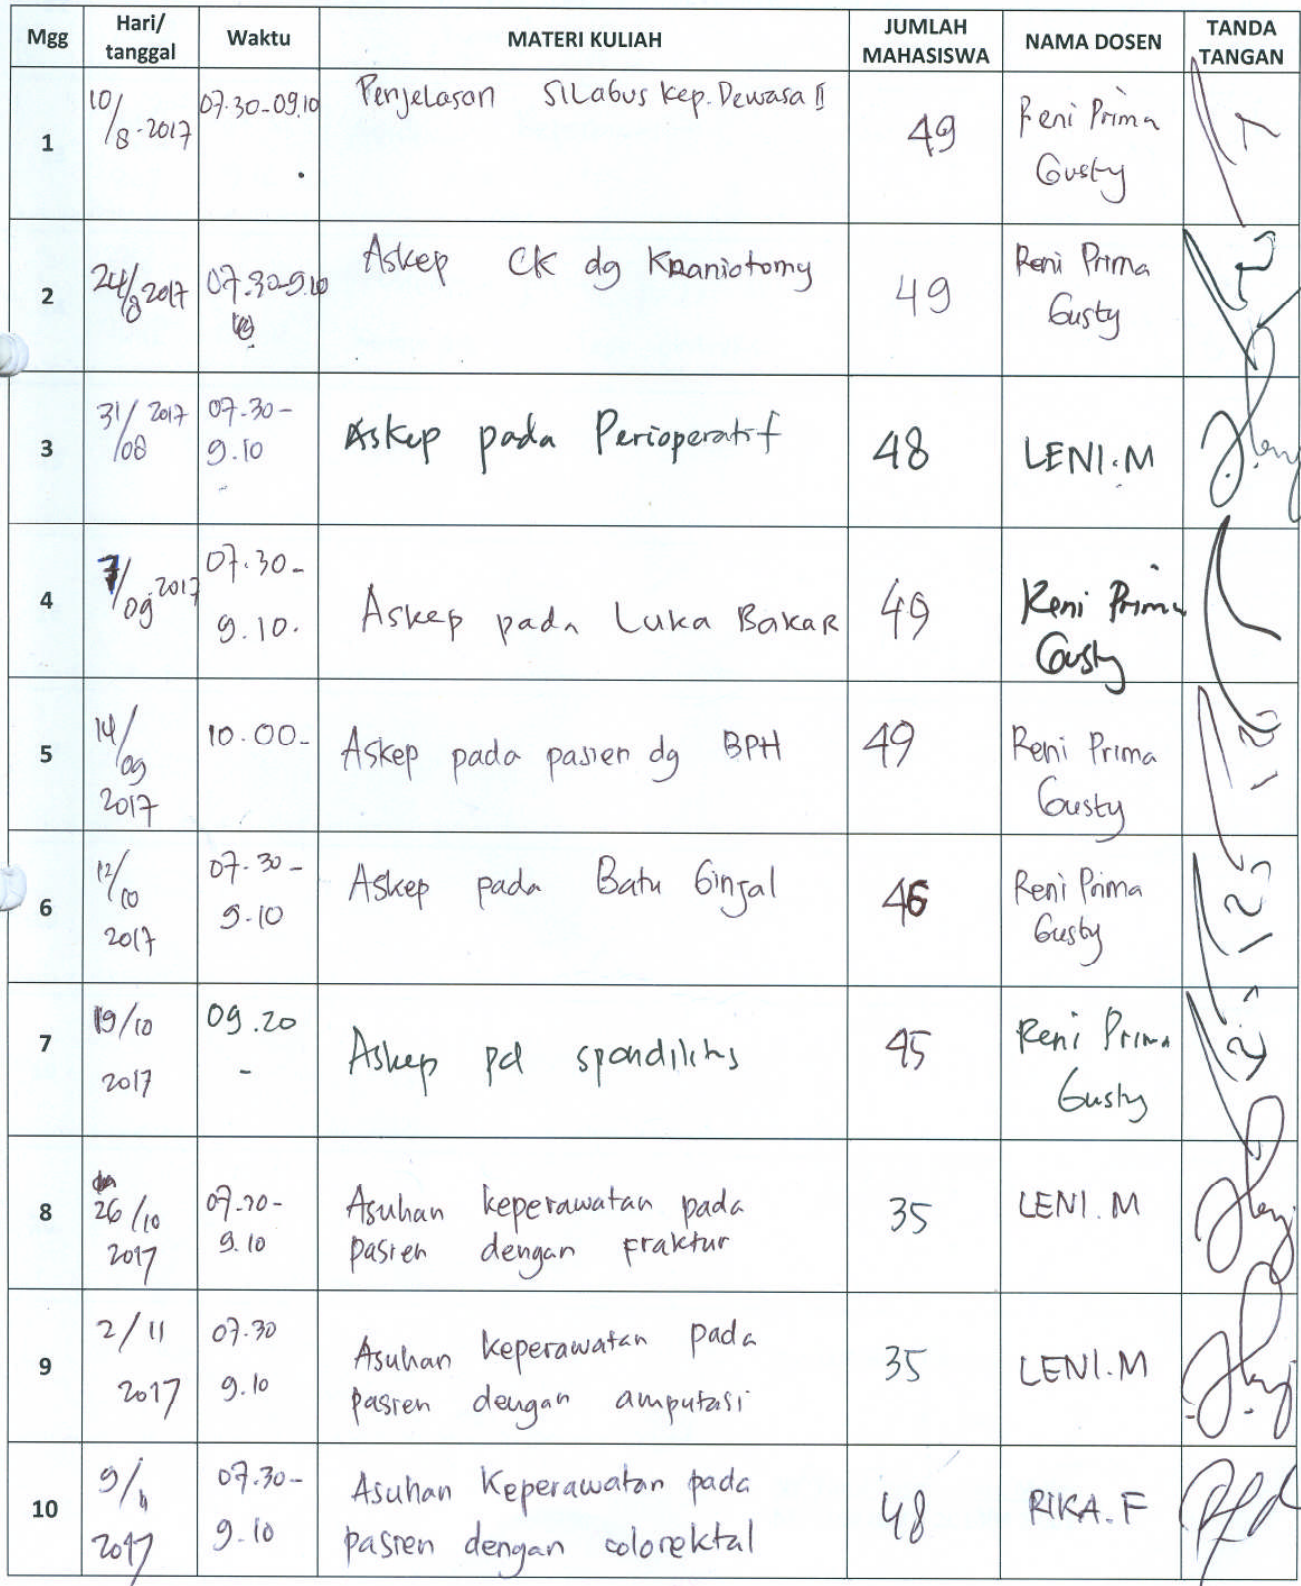 Mgg Hari/ tanggal Waktu MATERI KULIAH JUMLAH MAHASISWA NAMA DOSEN TANDA TANGAN
1 10/8-2017 07.30-09.10 Penjelasan SILabus Kep. Dewasa II 49 Reni Prima Gusty
2 24/8 2017 07.30-9.10 Askep CK dg Kraniotomy 49 Reni Prima Gusty
3 31/08 2017 07.30-9.10 Askep pada Perioperatif 48 LENI.M
4 7/09 2017 07.30-9.10. Askep pada Luka Bakar 49 Reni Prima Gusty
5 14/09 2017 10.00- Askep pada pasien dg BPH 49 Reni Prima Gusty
6 12/10 2017 07.30-9.10 Askep pada Batu Ginjal 46 Reni Prima Gusty
7 19/10 2017 09.20 - Askep pd spondilitis 45 Reni Prima Gusty
8 26/10 2017 9.10 Asuhan keperawatan pada pasien dengan Fraktur 35 LENI.M
9 2/11 2017 07.30 9.10 Asuhan keperawatan pada pasien dengan amputasi 35 LENI.M
10 9/11 2017 07.30-9.10 Asuhan Keperawatan pada pasien dengan colorektal 48 RIKA.F